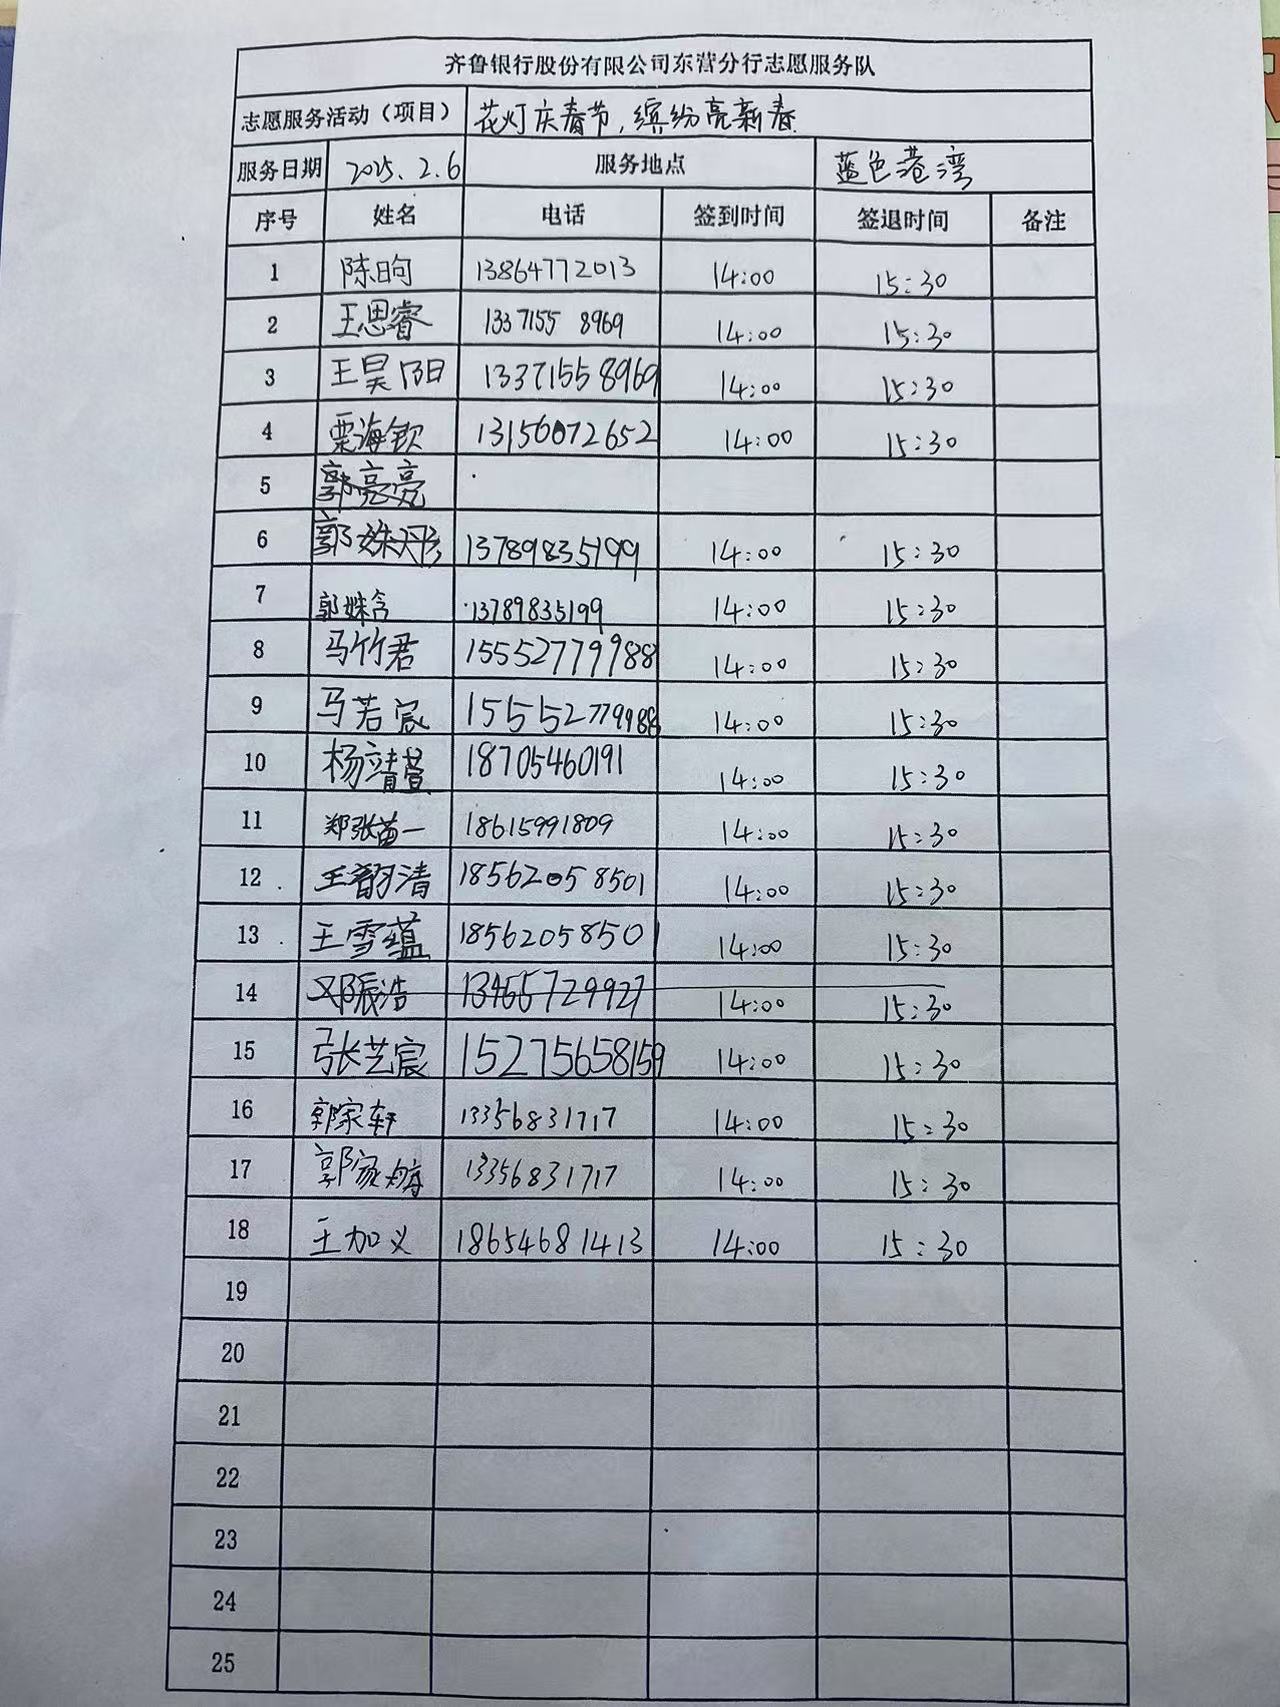 齐鲁银行股份有限公司东营分行志愿服务队
志愿服务活动（项目） 花灯庆春节，缤纷亮新春
服务日期 2025.2.6 服务地点 蓝色港湾
序号 姓名 电话 签到时间 签退时间 备注
1 陈昫 13864772013 14:00 15:30
2 王思睿 13371558969 14:00 15:30
3 王昊阳 13371558969 14:00 15:30
4 栗海钦 13156072652 14:00 15:30
5 郭亮亮
6 郭姝彤 13789835199 14:00 15:30
7 郭姝含 13789835199 14:00 15:30
8 马竹君 15552779988 14:00 15:30
9 马若宸 15552779988 14:00 15:30
10 杨靖萱 18705460191 14:00 15:30
11 郑张苗一 18615991809 14:00 15:30
12 王韵清 18562058501 14:00 15:30
13 王雪蕴 18562058501 14:00 15:30
14 邓振浩 13465729927 14:00 15:30
15 张艺宸 15275658159 14:00 15:30
16 郭家轩 13356831717 14:00 15:30
17 郭家 13356831717 14:00 15:30
18 王加义 18654681413 14:00 15:30
19
20
21
22
23
24
25